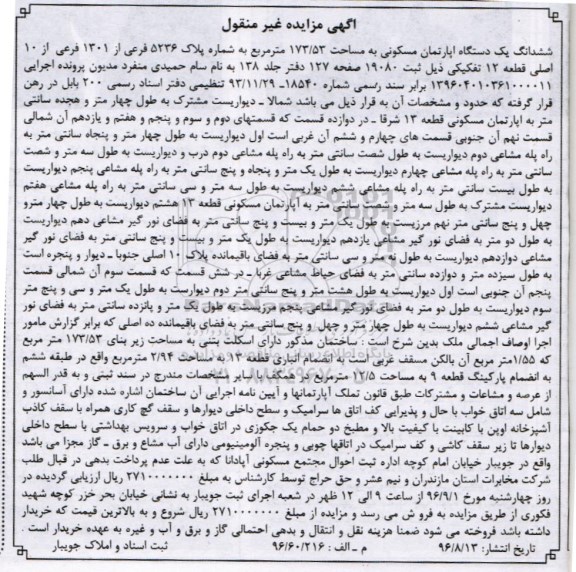 آگهی مزایده غیر منقول
ششدانگ یک دستگاه آپارتمان مسکونی به مساحت ۱۷۳/۵۳ مترمربع به شماره پلاک ۵۲۳۶ فرعی از ۱۳۰۱ فرعی از ۱۰
اصلی قطعه ۱۲ تفکیکی ذیل ثبت ۱۹۰۸۰ صفحه ۱۲۷ دفتر جلد ۱۳۸ به نام سام حمیدی منفرد مدیون پرونده اجرایی
۱۳۹۶۰۴۰۱۰۳۶۱۰۰۰۰۱۱ برابر سند رسمی شماره ۱۸۵۴۰- ۹۳/۱۱/۲۹ تنظیمی دفتر اسناد رسمی ۲۰۰ بابل در رهن
قرار گرفته که حدود و مشخصات آن به قرار ذیل می باشد شمالا - دیواریست مشترک به طول چهار متر و هجده سانتی
متر به آپارتمان مسکونی قطعه ۱۳ شرقا - در دوازده قسمت که قسمتهای دوم و سوم و پنجم و هفتم و یازدهم آن شمالی
قسمت نهم آن جنوبی قسمت های چهارم و ششم آن غربی است اول دیواریست به طول چهار متر و پنجاه سانتی متر به
راه پله مشاعی دوم دیواریست به طول شصت سانتی متر به راه پله مشاعی دوم درب و دیواریست به طول سه متر و شصت
سانتی متر به راه پله مشاعی چهارم دیواریست به طول یک متر و پنجاه و پنج سانتی متر به راه پله مشاعی پنجم دیواریست
به طول بیست سانتی متر به راه پله مشاعی ششم دیواریست به طول سه متر و سی سانتی متر به راه پله مشاعی هفتم
دیواریست مشترک به طول سه متر و شصت سانتی متر به آپارتمان مسکونی قطعه ۱۳ هشتم دیواریست به طول چهار مترو
چهل و پنج سانتی متر نهم مرزیست به طول یک متر و بیست و پنج سانتی متر به فضای نور گیر مشاعی دهم دیواریست
به طول دو متر به فضای نور گیر مشاعی یازدهم دیواریست به طول یک متر و بیست و پنج سانتی متر به فضای نور گیر
مشاعی دوازدهم دیواریست به طول نه متر و سی سانتی متر به فضای باقیمانده پلاک ۱۰ اصلی جنوبا - دیوار و پنجره است
به طول سیزده متر و دوازده سانتی متر به فضای حیاط مشاعی غربا - در شش قسمت که قسمت سوم آن شمالی قسمت
پنجم آن جنوبی است اول دیواریست به طول هشت متر و پنج سانتی متر دوم دیواریست به طول یک متر و سی و پنج متر
سوم دیواریست به طول دو متر به فضای نور گیر مشاعی پنجم مرزیست به طول یک متر و پانزده سانتی متر به فضای نور
گیر مشاعی ششم دیواریست به طول چهار متر و چهل و پنج سانتی متر به فضای باقیمانده ده اصلی که برابر گزارش مامور
اجرا اوصاف اجمالی ملک بدین شرح است : ساختمان مذکور دارای اسکلت بتنی به مساحت زیر بنای ۱۷۳/۵۳ متر مربع
که ۱/۵۵متر مربع آن بالکن مسقف غربی است به انضمام انباری قطعه ۱۳ به مساحت ۲/۹۴ مترمربع واقع در طبقه ششم
به انضمام پارکینگ قطعه ۹ به مساحت ۱۲/۵ مترمربع در همکف با سایر مشخصات مندرج در سند ثبتی و به قدر السهم
از عرصه و مشاعات و مشترکات طبق قانون تملک آپارتمانها و آیین نامه اجرایی آن ساختمان اشاره شده دارای آسانسور و
شامل سه اتاق خواب با حال و پذیرایی کف اتاق ها سرامیک و سطح داخلی دیوارها و سقف گچ کاری همراه با سقف کاذب
آشپزخانه اوپن با کابینت با کیفیت بالا و مطبخ دو حمام یک جکوزی در اتاق خواب و سرویس بهداشتی با سطح داخلی
دیوارها تا زیر سقف کاشی و کف سرامیک در اتاقها چوبی و پنجره آلومینیومی دارای آب مشاع و برق - گاز مجزا می باشد
واقع در جویبار خیابان امام کوچه اداره ثبت احوال مجتمع مسکونی آپادانا که به علت عدم پرداخت بدهی در قبال طلب
شرکت مخابرات استان مازندران و نیم عشر و حق حراج توسط کارشناس به مبلغ ۲۷۱۰۰۰۰۰۰۰ ریال ارزیابی گردیده در
روز چهارشنبه مورخ ۹۶/۹/۱ از ساعت ۹ الی ۱۲ ظهر در شعبه اجرای ثبت جویبار به نشانی خیابان بحر خزر کوچه شهید
فکوری از طریق مزایده به فرو ش می رسد و مزایده از مبلغ ۲۷۱۰۰۰۰۰۰۰ ریال شروع و به بالاترین قیمت که خریدار
داشته باشد فروخته می شود ضمنا هزینه نقل و انتقال و بدهی احتمالی گاز و برق و آب و غیره به عهده خریدار است .
تاریخ انتشار: ۹۶/۸/۱۳ م - الف : ۹۶/۶۰/۲۱۶ ثبت اسناد و املاک جویبار